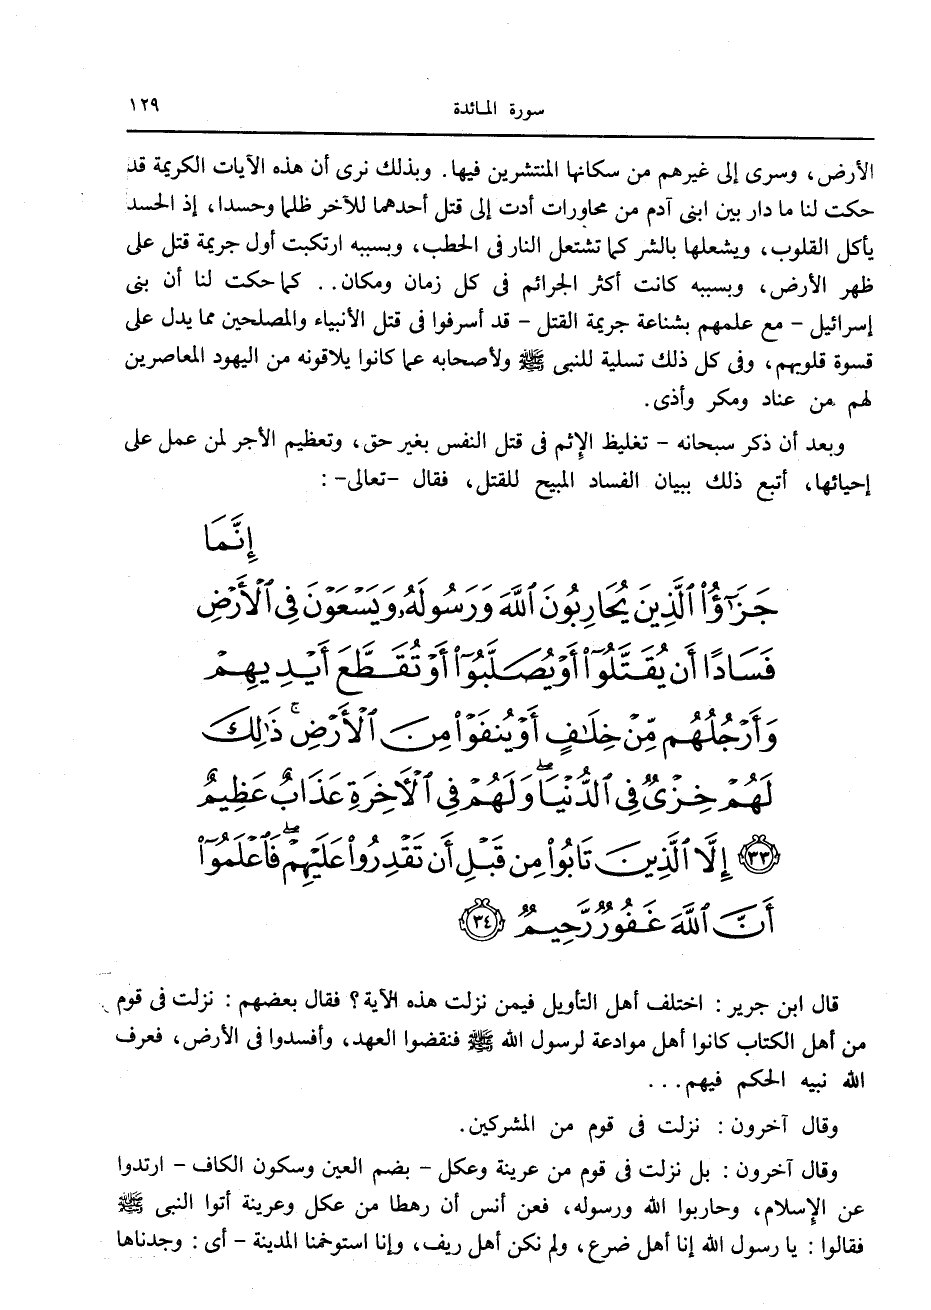 سورة المائدة ١٢٩
الأرض، وسرى إلى غيرهم من سكانها المنتشرين فيها. وبذلك نرى أن هذه الآيات الكريمة قد
حكت لنا ما دار بين ابنى آدم من محاورات أدت إلى قتل أحدهما للآخر ظلما وحسدا، إذ الحسد
يأكل القلوب، ويشعلها بالشر كما تشتعل النار فى الحطب، وبسببه ارتكبت أول جريمة قتل على
ظهر الأرض، وبسببه كانت أكثر الجرائم فى كل زمان ومكان.. كما حكت لنا أن بنى
إسرائيل - مع علمهم بشناعة جريمة القتل - قد أسرفوا فى قتل الأنبياء والمصلحين مما يدل على
قسوة قلوبهم، وفى كل ذلك تسلية للنبى ﷺ ولأصحابه عما كانوا يلاقونه من اليهود المعاصرين
لهم من عناد ومكر وأذى.
وبعد أن ذكر سبحانه - تغليظ الإثم فى قتل النفس بغير حق، وتعظيم الأجر لمن عمل على
إحيائها، أتبع ذلك ببيان الفساد المبيح للقتل، فقال -تعالى- :
إِنَّمَا
جَزَٰٓؤُا۟ ٱلَّذِينَ يُحَارِبُونَ ٱللَّهَ وَرَسُولَهُۥ وَيَسْعَوْنَ فِى ٱلْأَرْضِ
فَسَادًا أَن يُقَتَّلُوٓا۟ أَوْ يُصَلَّبُوٓا۟ أَوْ تُقَطَّعَ أَيْدِيهِمْ
وَأَرْجُلُهُم مِّنْ خِلَٰفٍ أَوْ يُنفَوْا۟ مِنَ ٱلْأَرْضِ ۚ ذَٰلِكَ
لَهُمْ خِزْىٌ فِى ٱلدُّنْيَا ۖ وَلَهُمْ فِى ٱلْآخِرَةِ عَذَابٌ عَظِيمٌ
٣٣ إِلَّا ٱلَّذِينَ تَابُوا۟ مِن قَبْلِ أَن تَقْدِرُوا۟ عَلَيْهِمْ ۖ فَٱعْلَمُوٓا۟
أَنَّ ٱللَّهَ غَفُورٌ رَّحِيمٌ ٣٤
قال ابن جرير : اختلف أهل التأويل فيمن نزلت هذه الآية؟ فقال بعضهم : نزلت فى قوم
من أهل الكتاب كانوا أهل موادعة لرسول الله ﷺ فنقضوا العهد، وأفسدوا فى الأرض، فعرف
الله نبيه الحكم فيهم...
وقال آخرون : نزلت فى قوم من المشركين.
وقال آخرون : بل نزلت فى قوم من عرينة وعكل - بضم العين وسكون الكاف - ارتدوا
عن الإسلام، وحاربوا الله ورسوله، فعن أنس أن رهطا من عكل وعرينة أتوا النبى ﷺ
فقالوا : يا رسول الله إنا أهل ضرع، ولم نكن أهل ريف، وإنا استوخمنا المدينة - أى : وجدناها